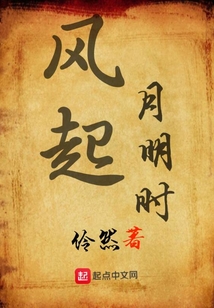 风起
月明时
伶然著
起点
起点中文网